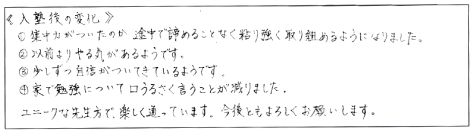 《入塾後の変化》
①集中力がついたのか、途中で諦めることなく粘り強く取り組めるようになりました。
②以前よりやる気があるようです。
③少しずつ自信がついてきているようです。
④家で勉強について口うるさく言うことが減りました。
ユニークな先生方で、楽しく通っています。今後ともよろしくお願いします。